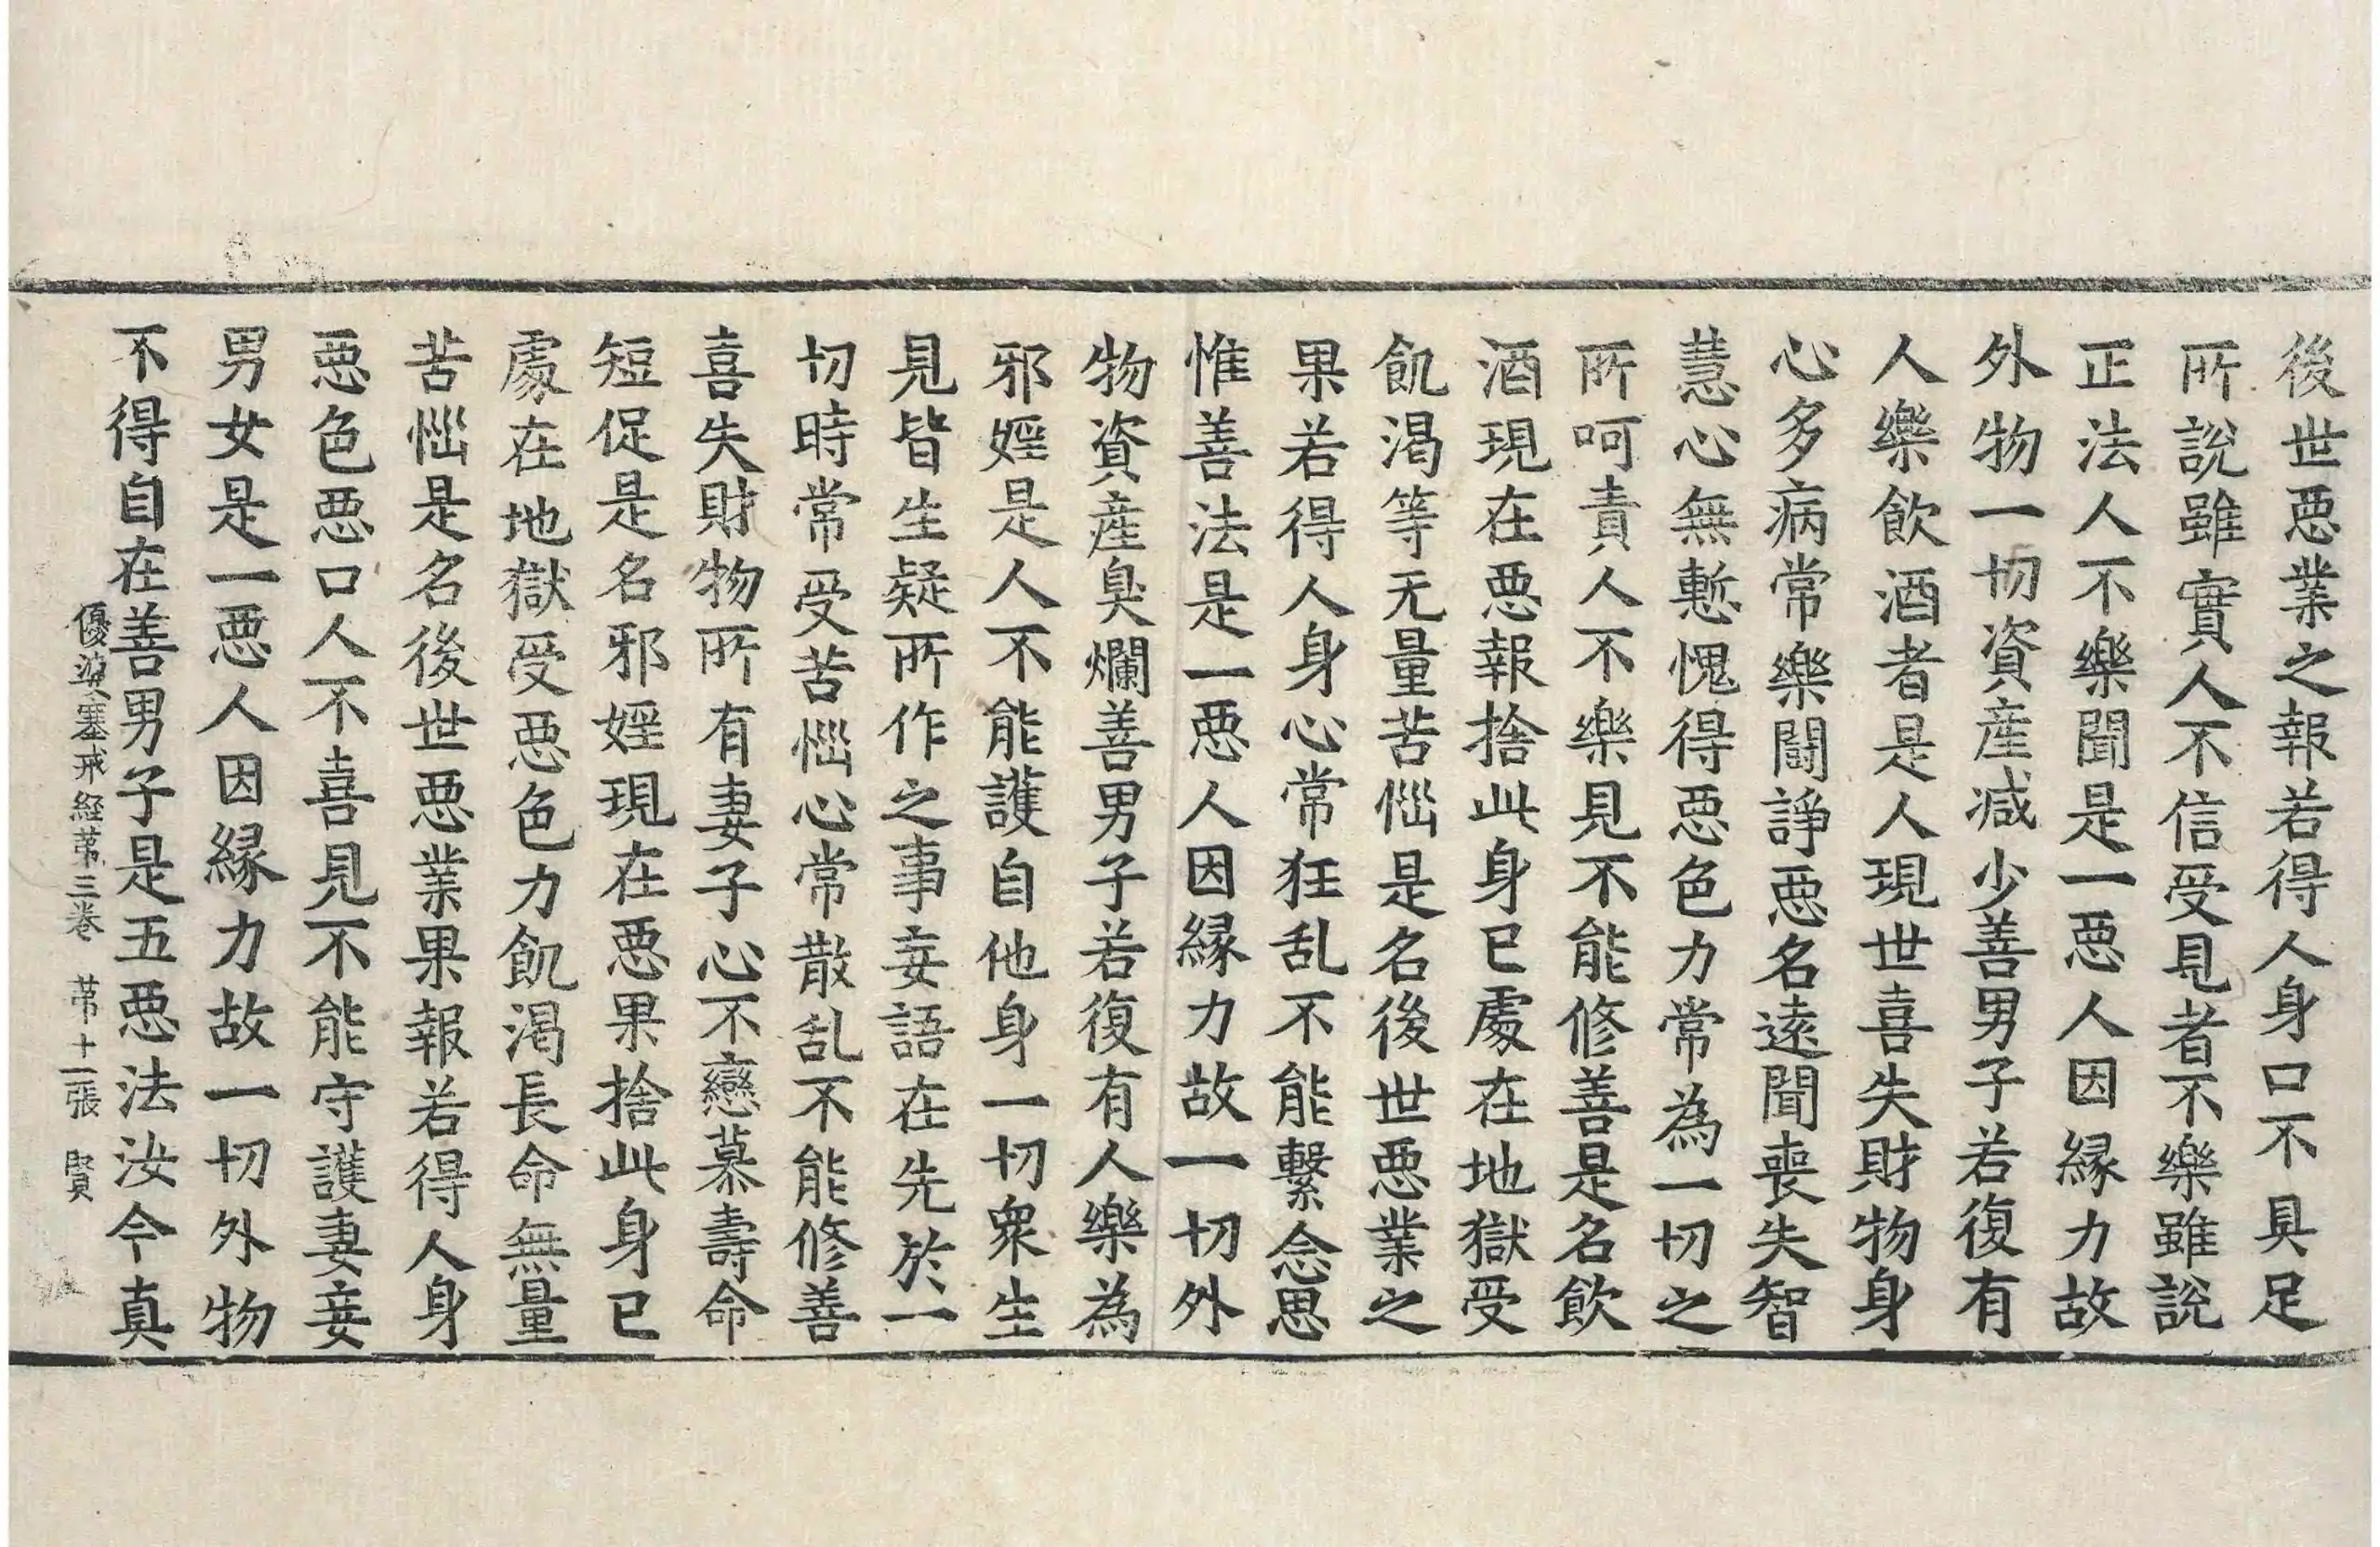 後世惡業之報若得人身口不具足
所說雖實人不信受見者不樂雖說
正法人不樂聞是一惡人因緣力故
外物一切資產減少善男子若復有
人樂飲酒者是人現世喜失財物身
心多病常樂鬪諍惡名遠聞喪失智
慧心無慙愧得惡色力常為一切之
所呵責人不樂見不能修善是名飲
酒現在惡報捨此身已處在地獄受
飢渴等无量苦惱是名後世惡業之
果若得人身心常狂乱不能繫念思
惟善法是一惡人因緣力故一切外
物資產臭爛善男子若復有人樂為
邪婬是人不能護自他身一切衆生
見皆生疑所作之事妄語在先於一
切時常受苦惱心常散乱不能修善
喜失財物所有妻子心不戀慕壽命
短促是名邪婬現在惡果捨此身已
處在地獄受惡色力飢渴長命無量
苦惱是名後世惡業果報若得人身
惡色惡口人不喜見不能守護妻妾
男女是一惡人因緣力故一切外物
不得自在善男子是五惡法汝今真
優婆塞戒経苐三卷 苐十二張 賢